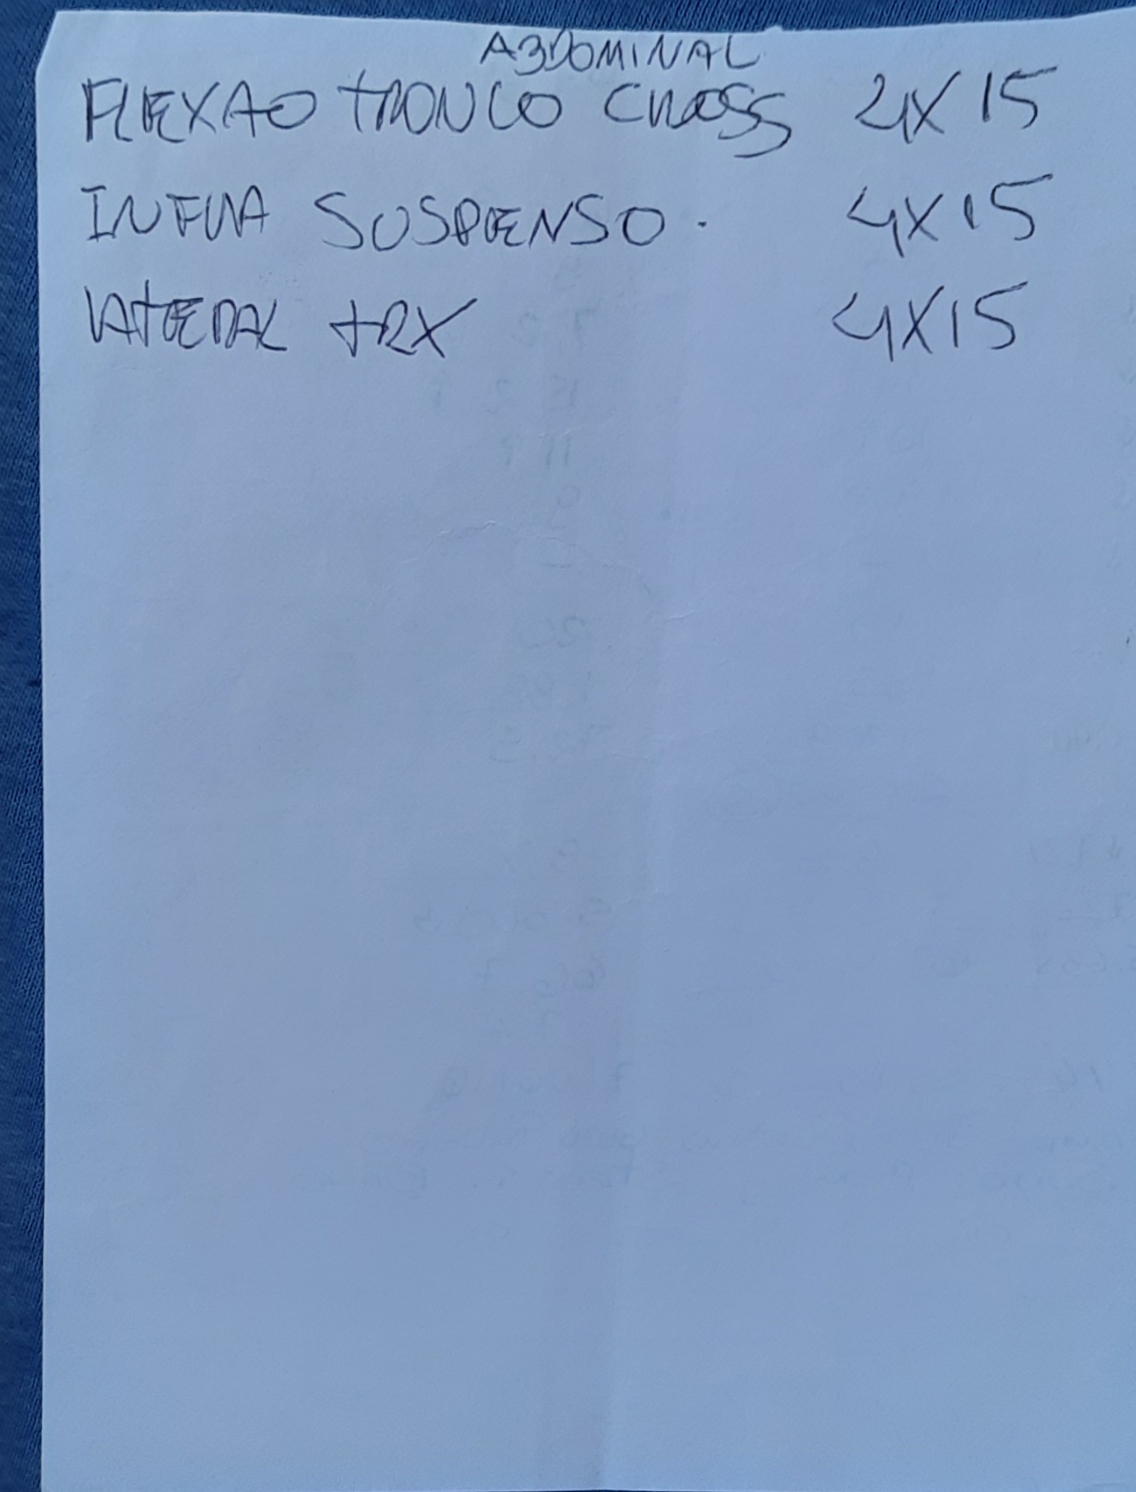 ABDOMINAL
FLEXAO TRONCO CROSS 4X15
INFRA SUSPENSO. 4X15
LATERAL TRX 4X15